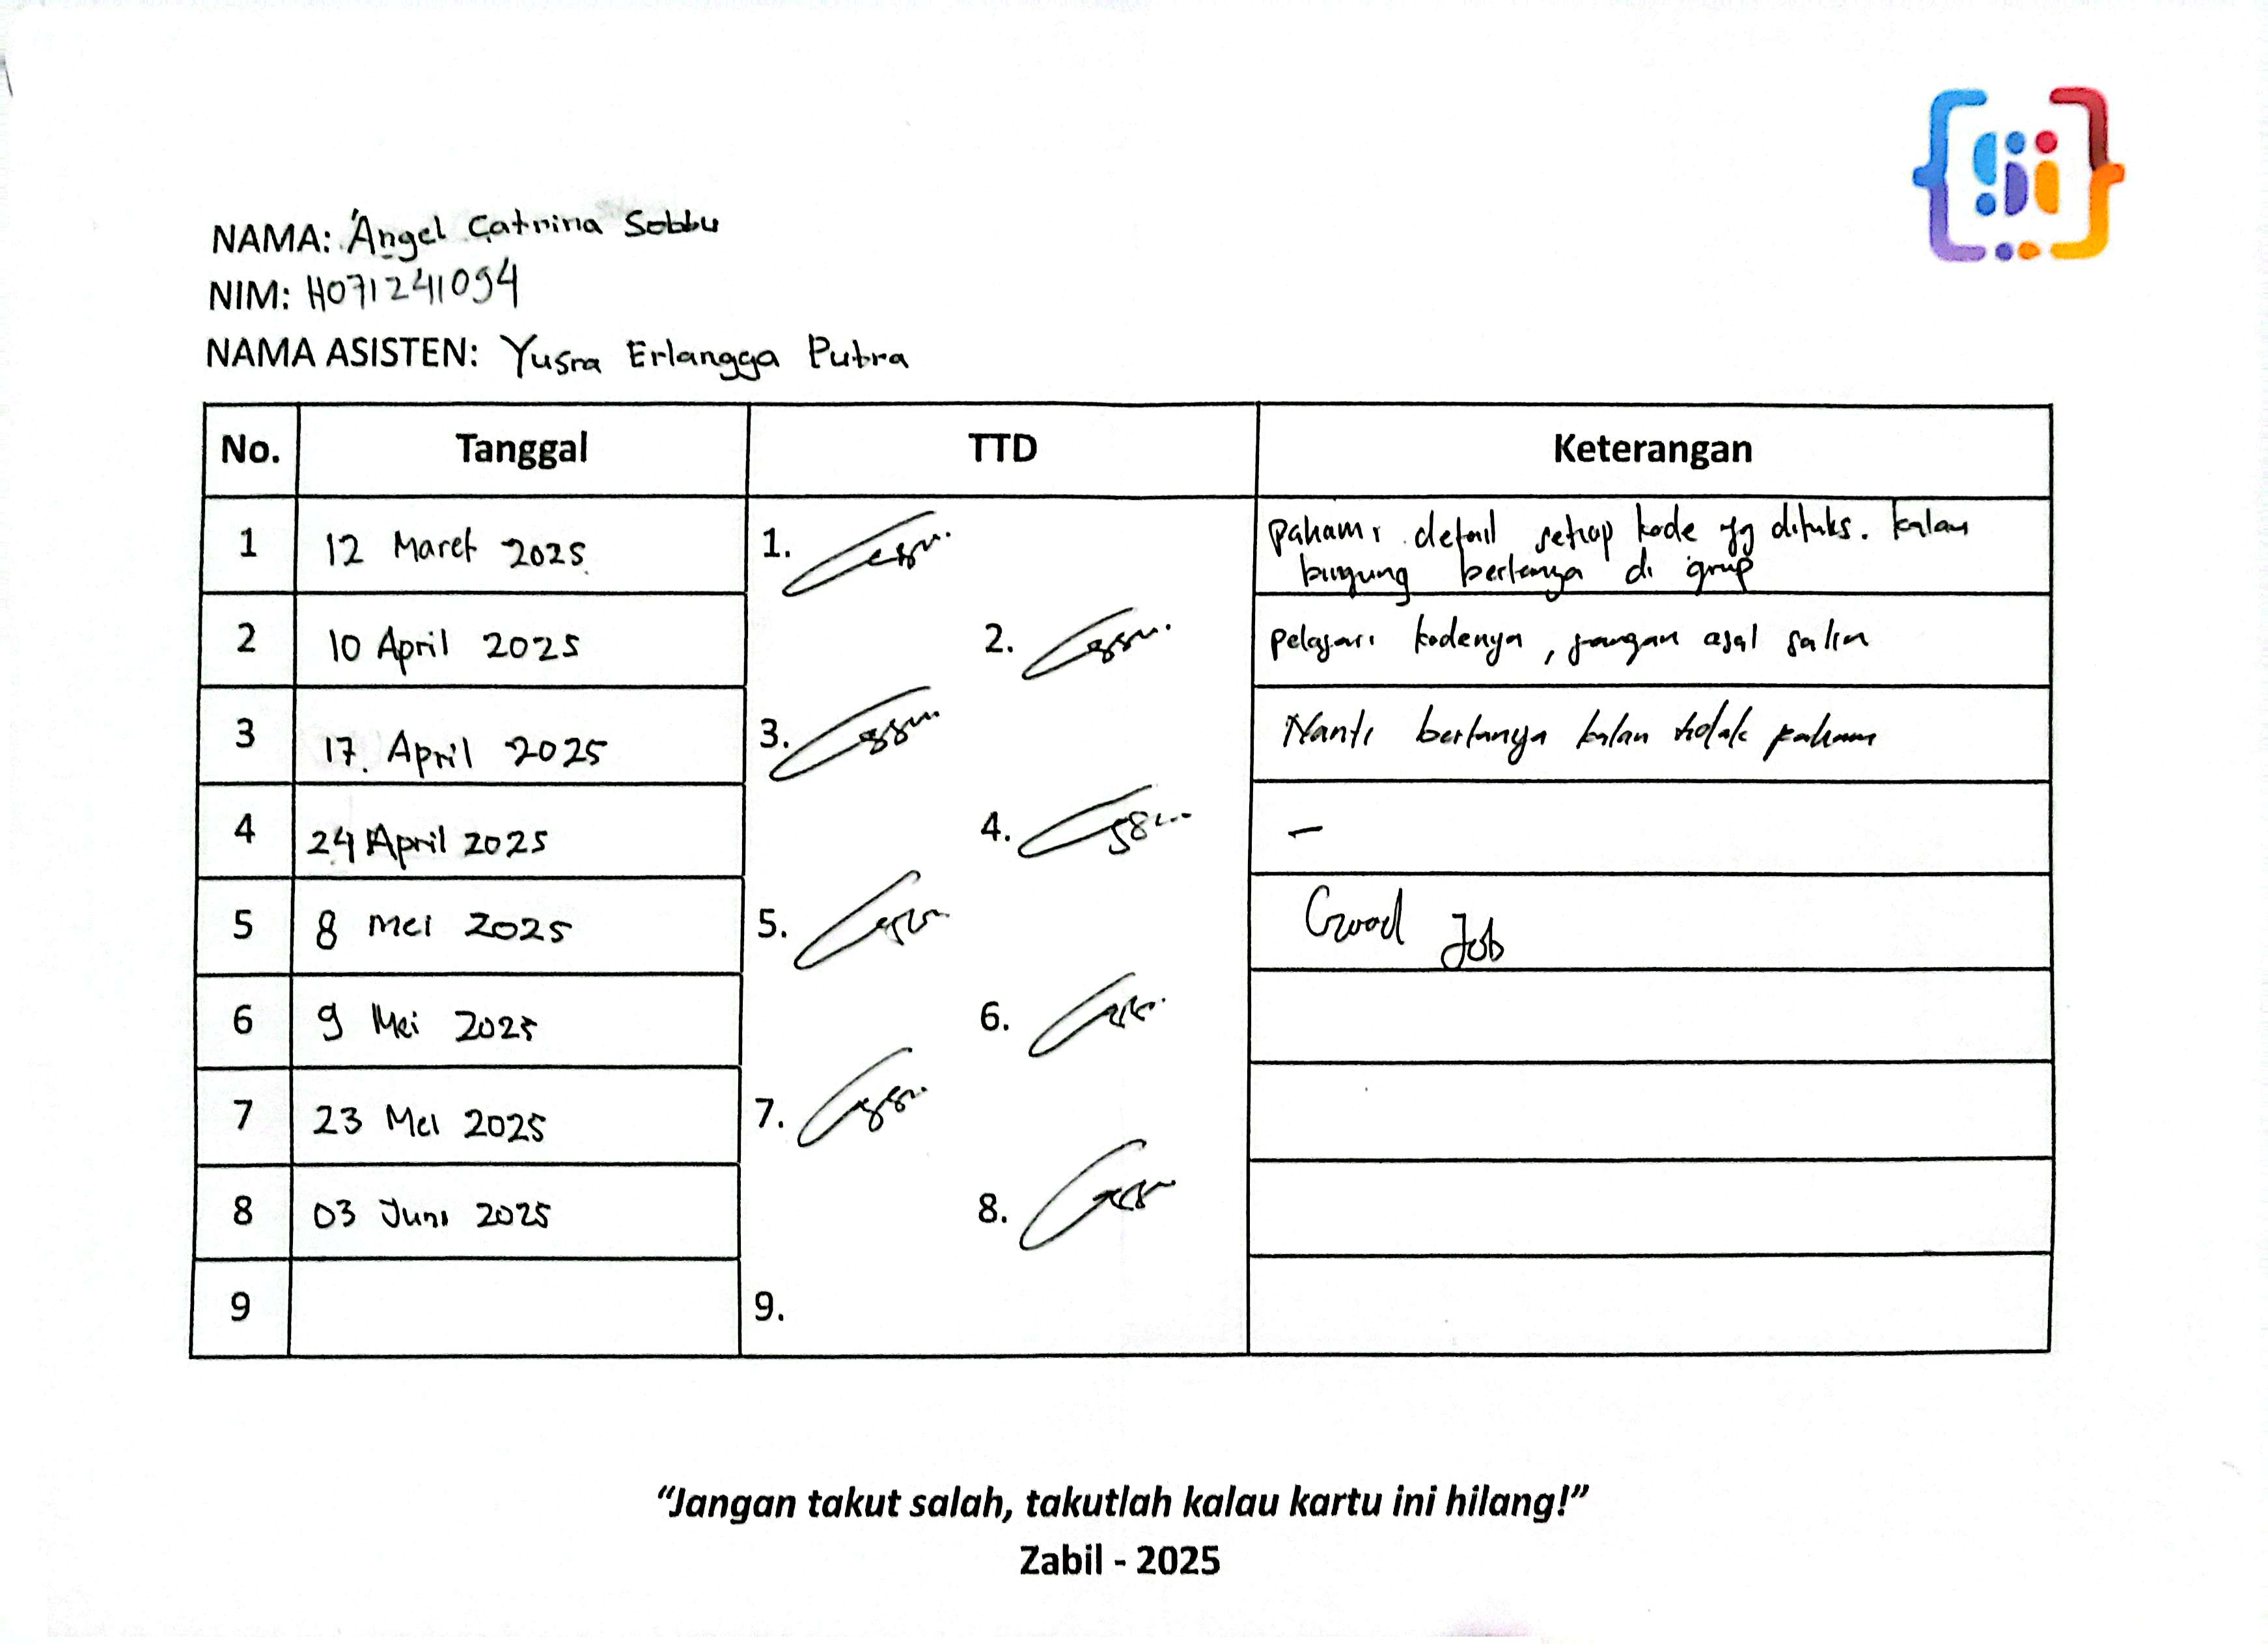 NAMA: Angel Catrina Sobbu
NIM: H071241094
NAMA ASISTEN: Yusra Erlangga Putra
No. Tanggal TTD Keterangan
1 12 Maret 2025 1. pahami detail setiap kode yg ditulis. kalau
bingung bertanya di grup
2 10 April 2025 2. pelajari kodenya, jangan asal salin
3 17 April 2025 3. Nanti bertanya kalau tidak paham
4 24 April 2025 4. –
5 8 Mei 2025 5. Good Job
6 9 Mei 2025 6.
7 23 Mei 2025 7.
8 03 Juni 2025 8.
9 9.
“Jangan takut salah, takutlah kalau kartu ini hilang!”
Zabil - 2025